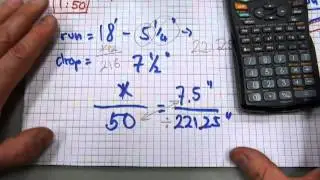 1:50
run = 18' - 5 1/4" →
216 221.25
drop = 7 1/2"
x/50 = 7.5"/221.25"
÷